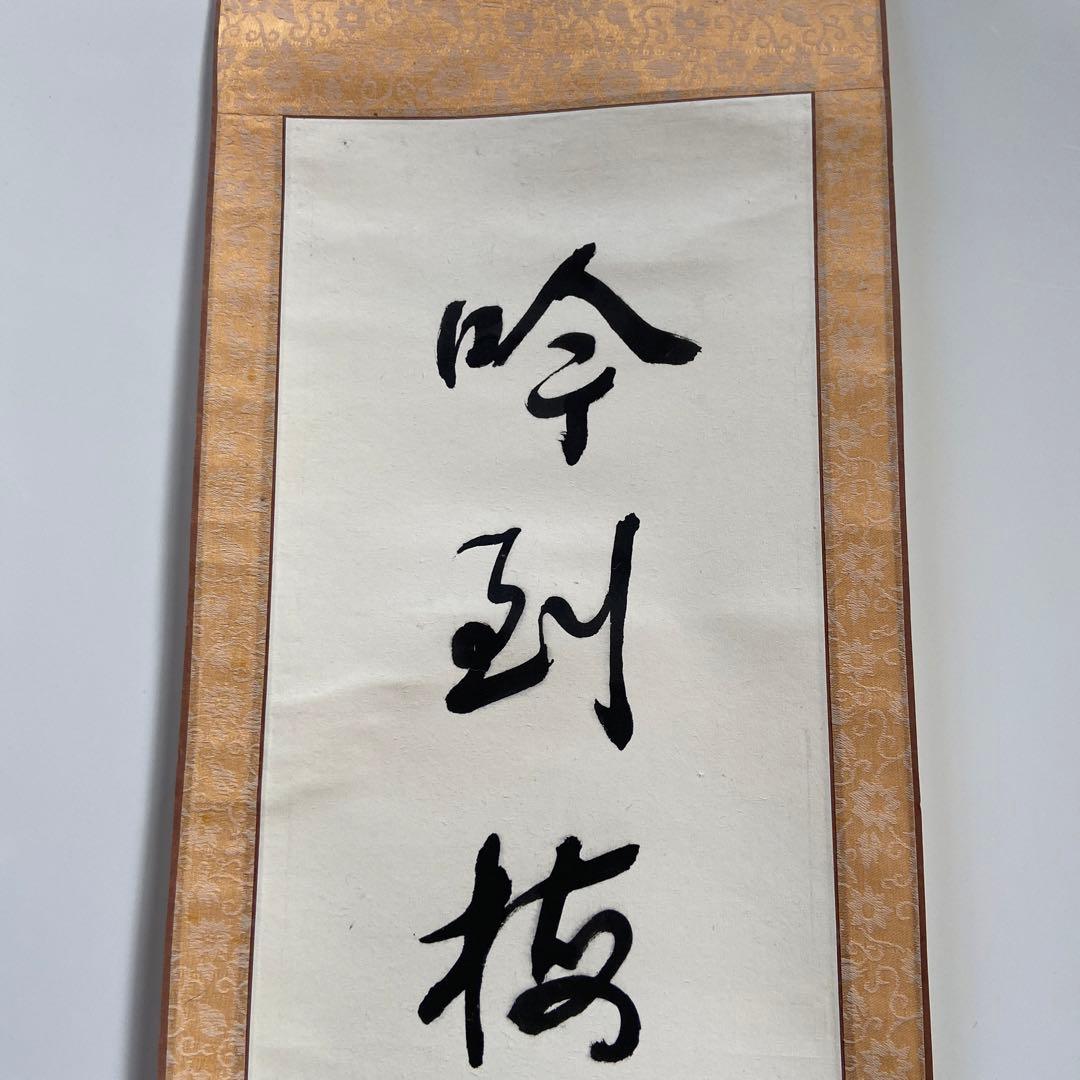 吟到梅